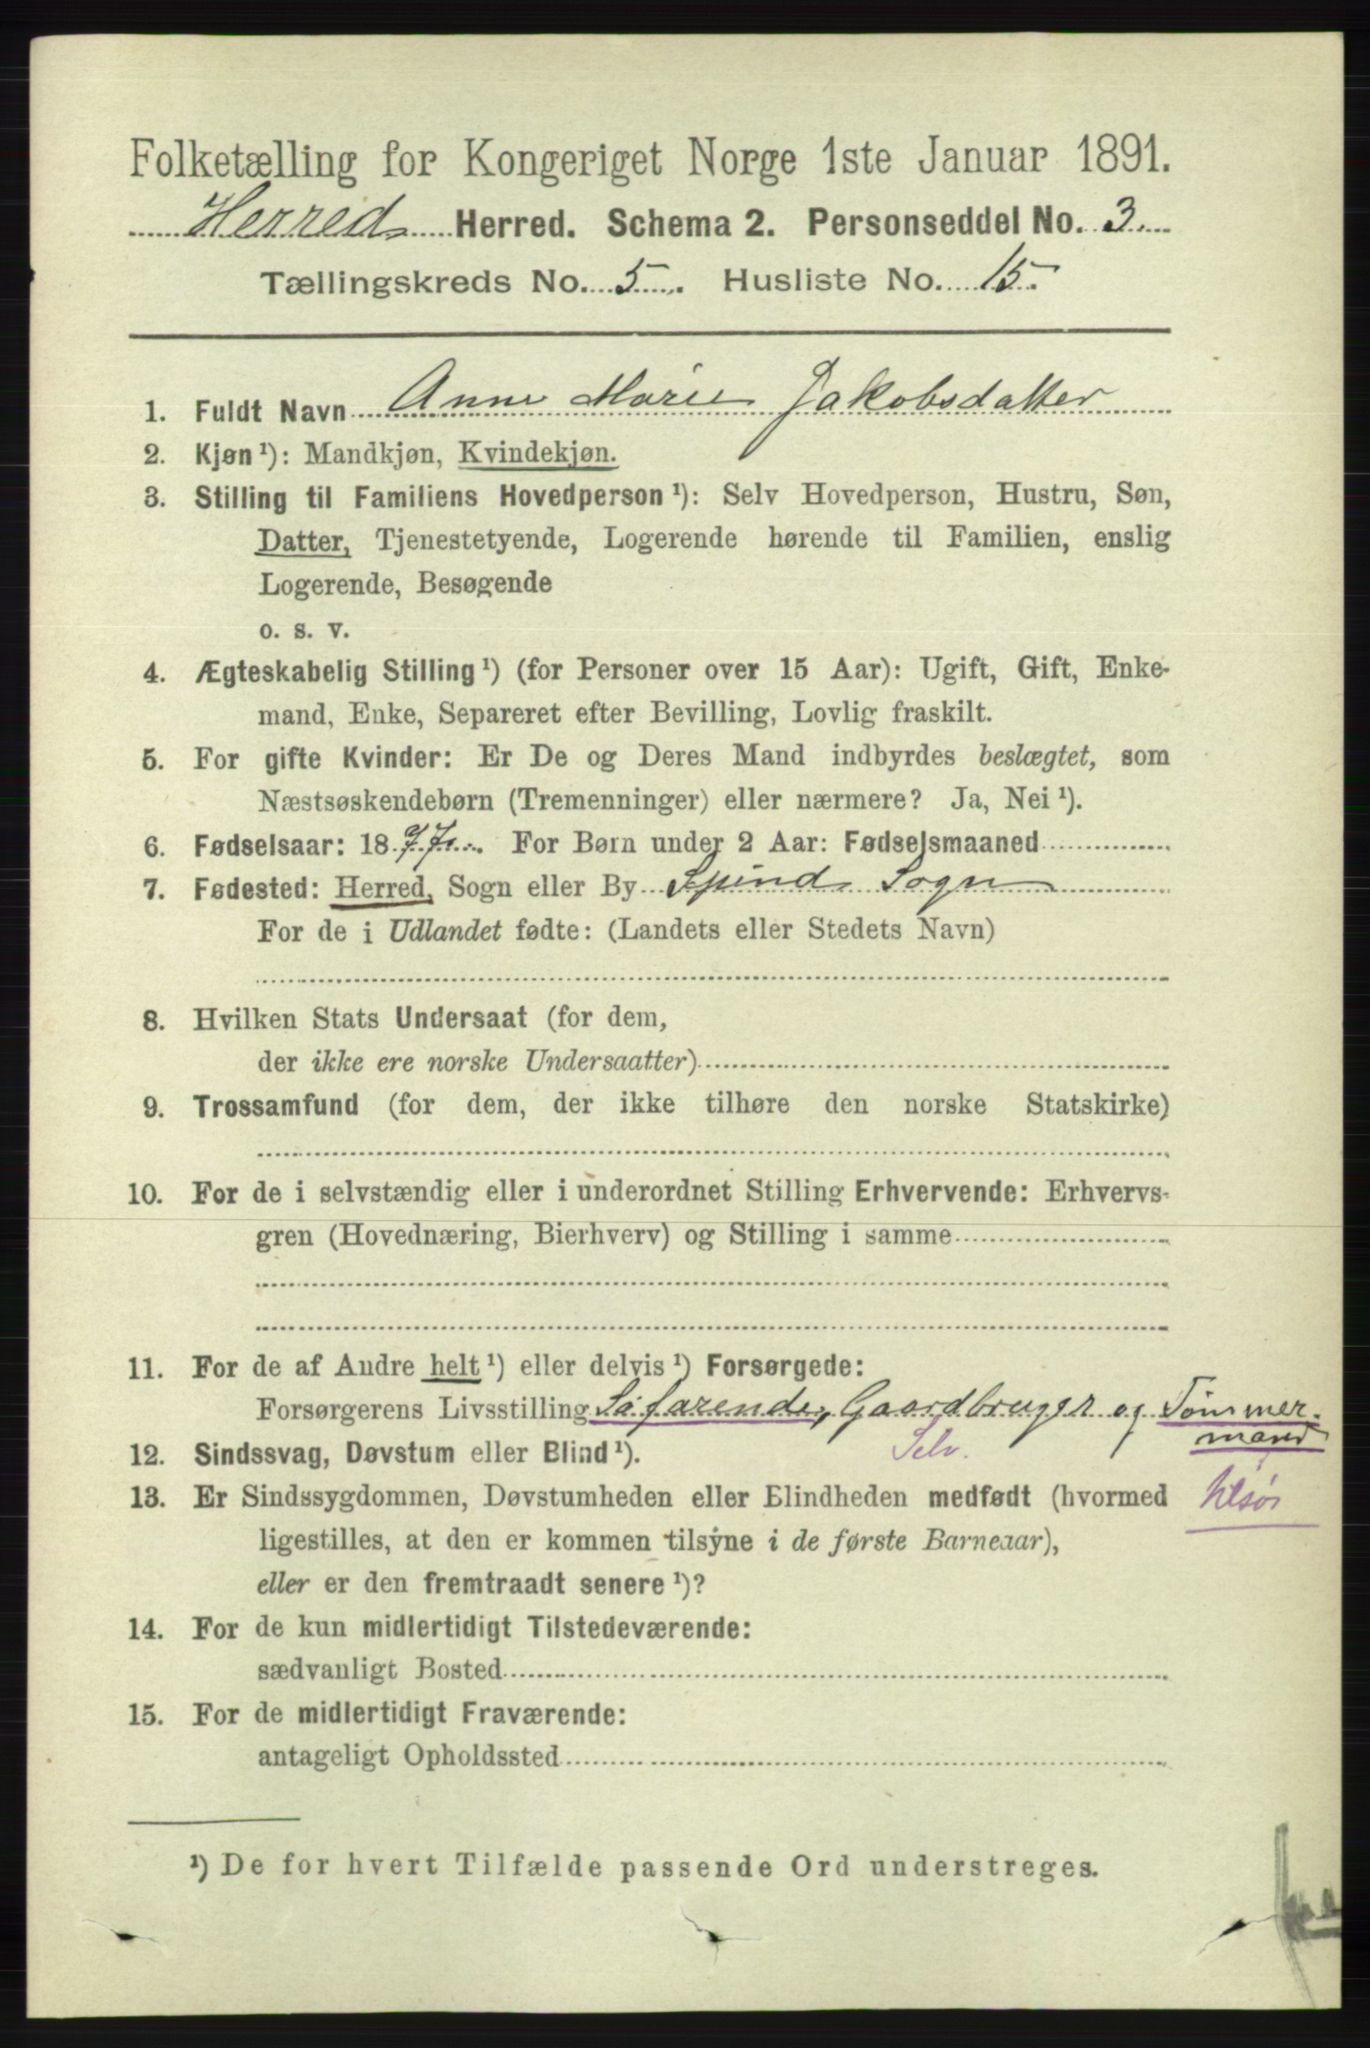 Folketælling for Kongeriget Norge 1ste Januar 1891.
Herred Herred. Schema 2. Personseddel No. 3.
Tællingskreds No. 5. Husliste No. 15.
1. Fuldt Navn Anne Marie Jakobsdatter
2. Kjøn ¹): Mandkjøn, Kvindekjøn.
3. Stilling til Familiens Hovedperson ¹): Selv Hovedperson, Hustru, Søn,
Datter, Tjenestetyende, Logerende hørende til Familien, enslig
Logerende, Besøgende
o. s. v.
4. Ægteskabelig Stilling ¹) (for Personer over 15 Aar): Ugift, Gift, Enke-
mand, Enke, Separeret efter Bevilling, Lovlig fraskilt.
5. For gifte Kvinder: Er De og Deres Mand indbyrdes beslægtet, som
Næstsøskendebørn (Tremenninger) eller nærmere? Ja, Nei ¹).
6. Fødselsaar: 18 For Børn under 2 Aar: Fødselsmaaned
7. Fødested: Herred, Sogn eller By Spind Sogn
For de i Udlandet fødte: (Landets eller Stedets Navn)
8. Hvilken Stats Undersaat (for dem,
der ikke ere norske Undersaatter)
9. Trossamfund (for dem, der ikke tilhøre den norske Statskirke)
10. For de i selvstændig eller i underordnet Stilling Erhvervende: Erhvervs-
gren (Hovednæring, Bierhverv) og Stilling i samme
11. For de af Andre helt ¹) eller delvis ¹) Forsørgede:
Forsørgerens Livsstilling Søfarende, Gaardbruger og Tømmer-
mand
Selv.
12. Sindssvag, Døvstum eller Blind ¹).
13. Er Sindssygdommen, Døvstumheden eller Blindheden medfødt (hvormed
ligestilles, at den er kommen tilsyne i de første Barneaar),
eller er den fremtraadt senere ¹)?
14. For de kun midlertidigt Tilstedeværende:
sædvanligt Bosted
15. For de midlertidigt Fraværende:
antageligt Opholdssted
¹) De for hvert Tilfælde passende Ord understreges.